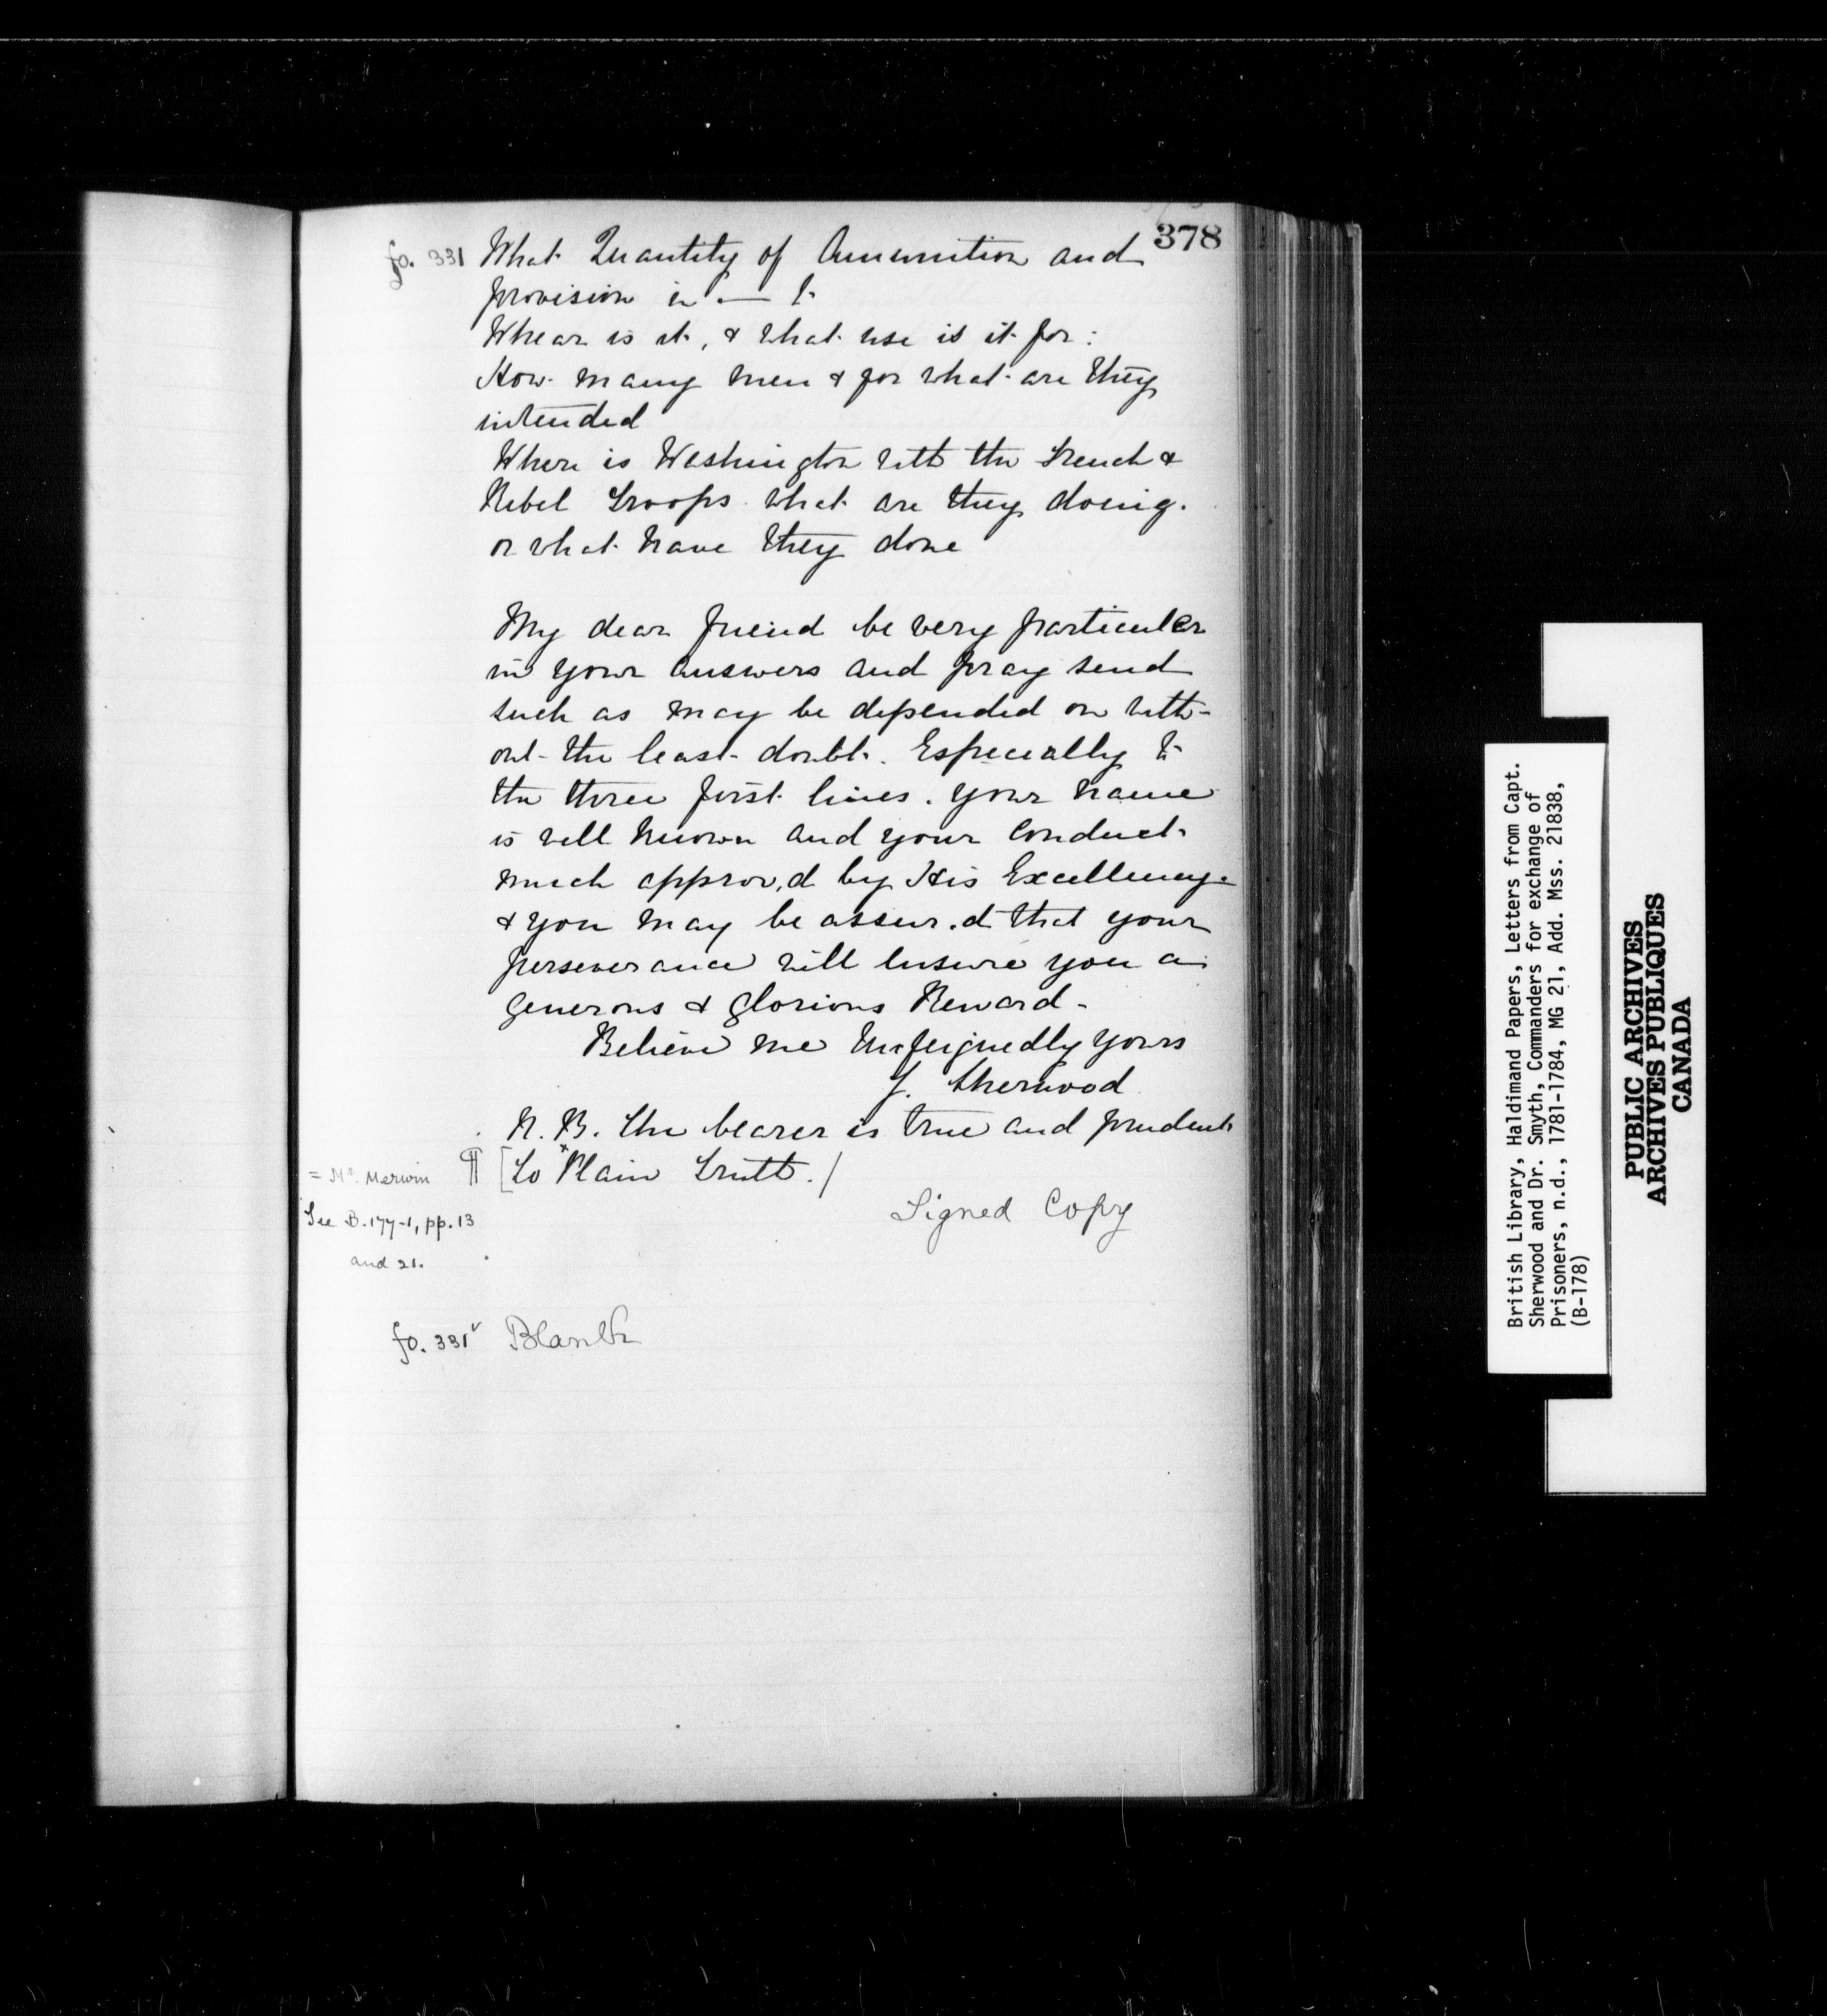 378
fo. 331 What Quantity of Ammunition and
provision is — &
Whear is it, & what use is it for:
How many men & for what are they
intended
Where is Washington with the French &
Rebel Troops what are they doing.
or what have they done
My dear friend be very particular
in your answers and pray send
such as may be depended on with-
out the least doubt. Especially to
the three first lines. your name
is well known and your conduct
much approv,d by His Excellency
& you may be assur.d that your
perseverance will ensure you a
generous & glorious Reward -
Believe me Unfeignedly yours
J. Sherwood
N. B. The bearer is true and prudent
¶ [To *Plain Truth./
= Mr. Merwin
See B.177-1, pp.13
and 21.
Signed Copy
fo. 331v Blank
British Library, Haldimand Papers, Letters from Capt.
Sherwood and Dr. Smyth, Commanders for exchange of
Prisoners, n.d., 1781-1784, MG 21, Add. Mss. 21838,
(B-178)
PUBLIC ARCHIVES
ARCHIVES PUBLIQUES
CANADA